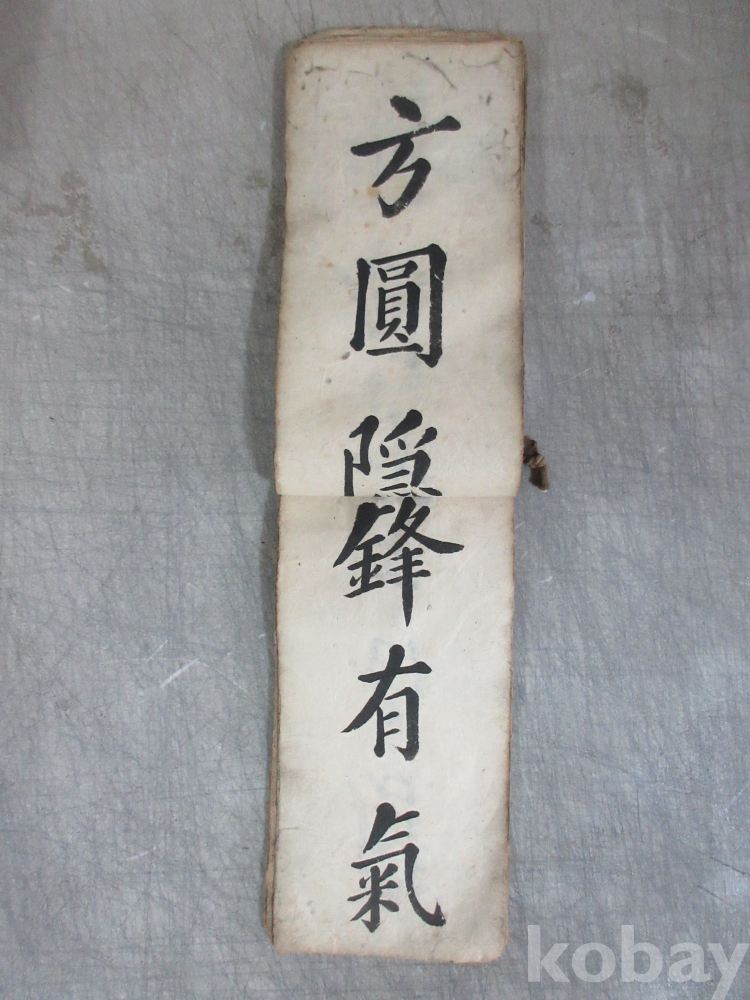 方圓隠鋒有氣
kobay